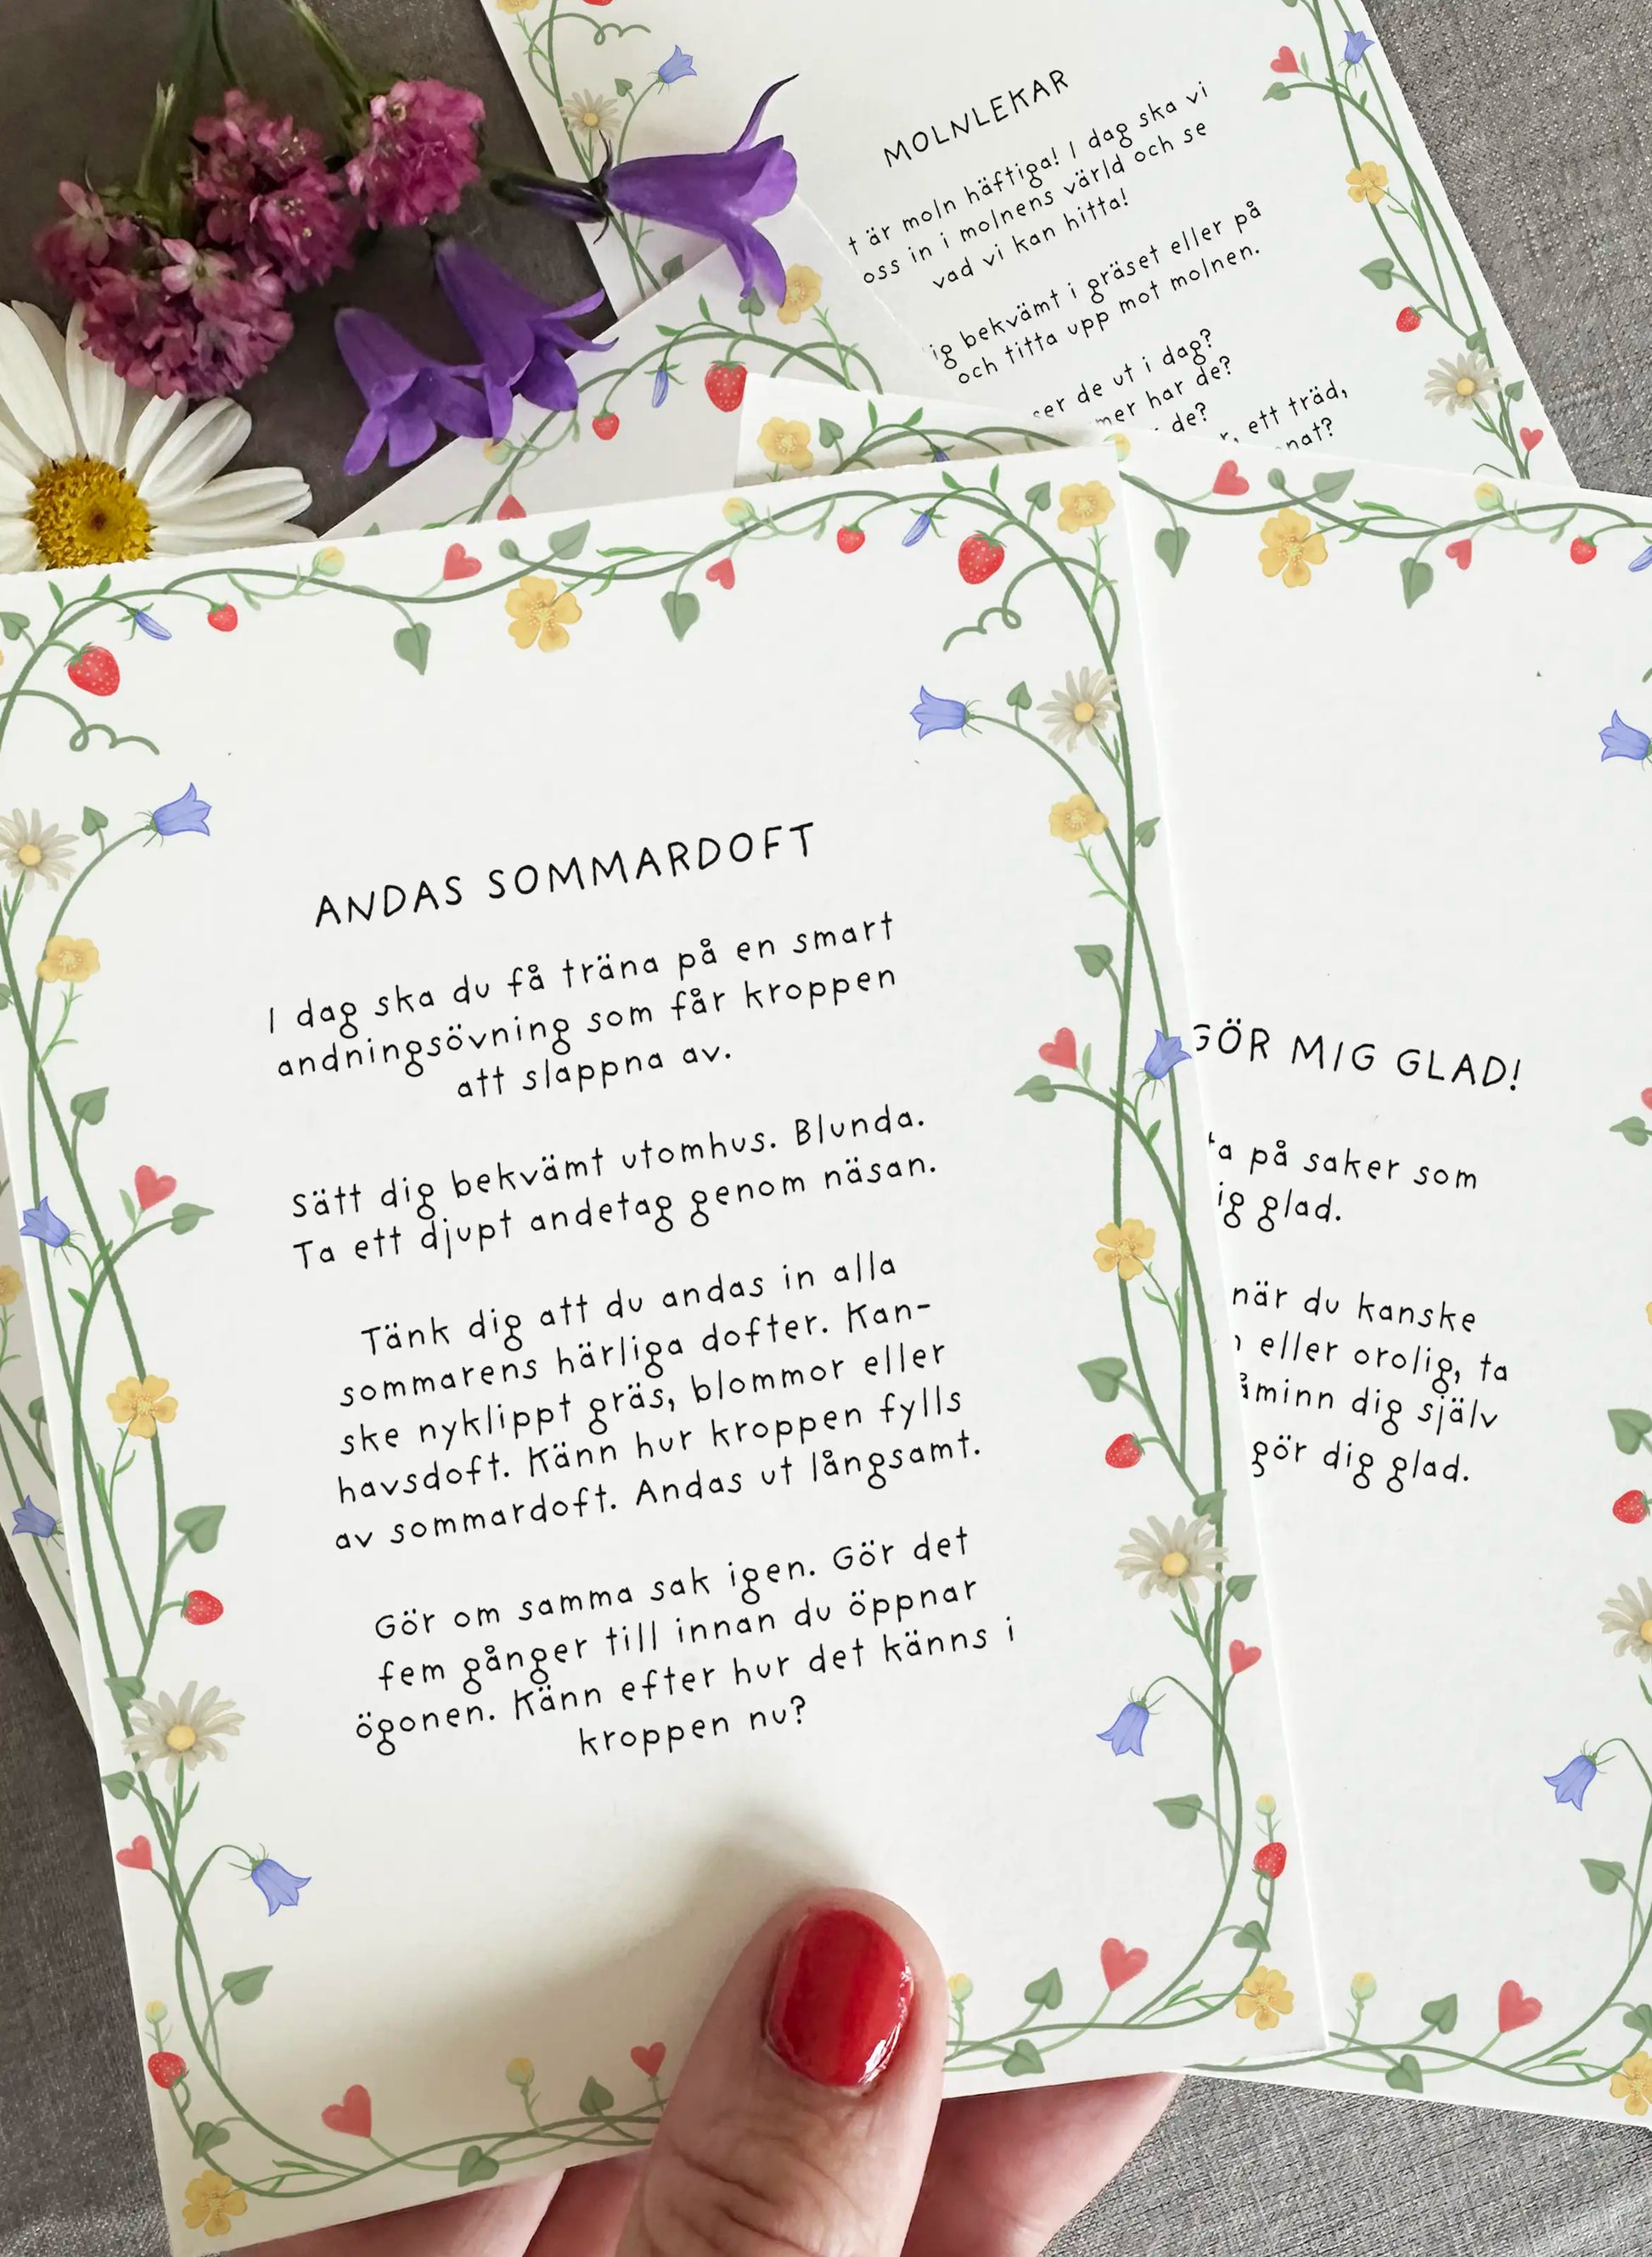 MOLNLEKAR
är moln häftiga! I dag ska vi
oss in i molnens värld och se
vad vi kan hitta!
bekvämt i gräset eller på
och titta upp mot molnen.
de ut i dag?
har de?
de?
ett träd,
ANDAS SOMMARDOFT
I dag ska du få träna på en smart
andningsövning som får kroppen
att slappna av.
Sätt dig bekvämt utomhus. Blunda.
Ta ett djupt andetag genom näsan.
Tänk dig att du andas in alla
sommarens härliga dofter. Kan-
ske nyklippt gräs, blommor eller
havsdoft. Känn hur kroppen fylls
av sommardoft. Andas ut långsamt.
Gör om samma sak igen. Gör det
fem gånger till innan du öppnar
ögonen. Känn efter hur det känns i
kroppen nu?
GÖR MIG GLAD!
på saker som
glad.
när du kanske
eller orolig, ta
dig själv
gör dig glad.